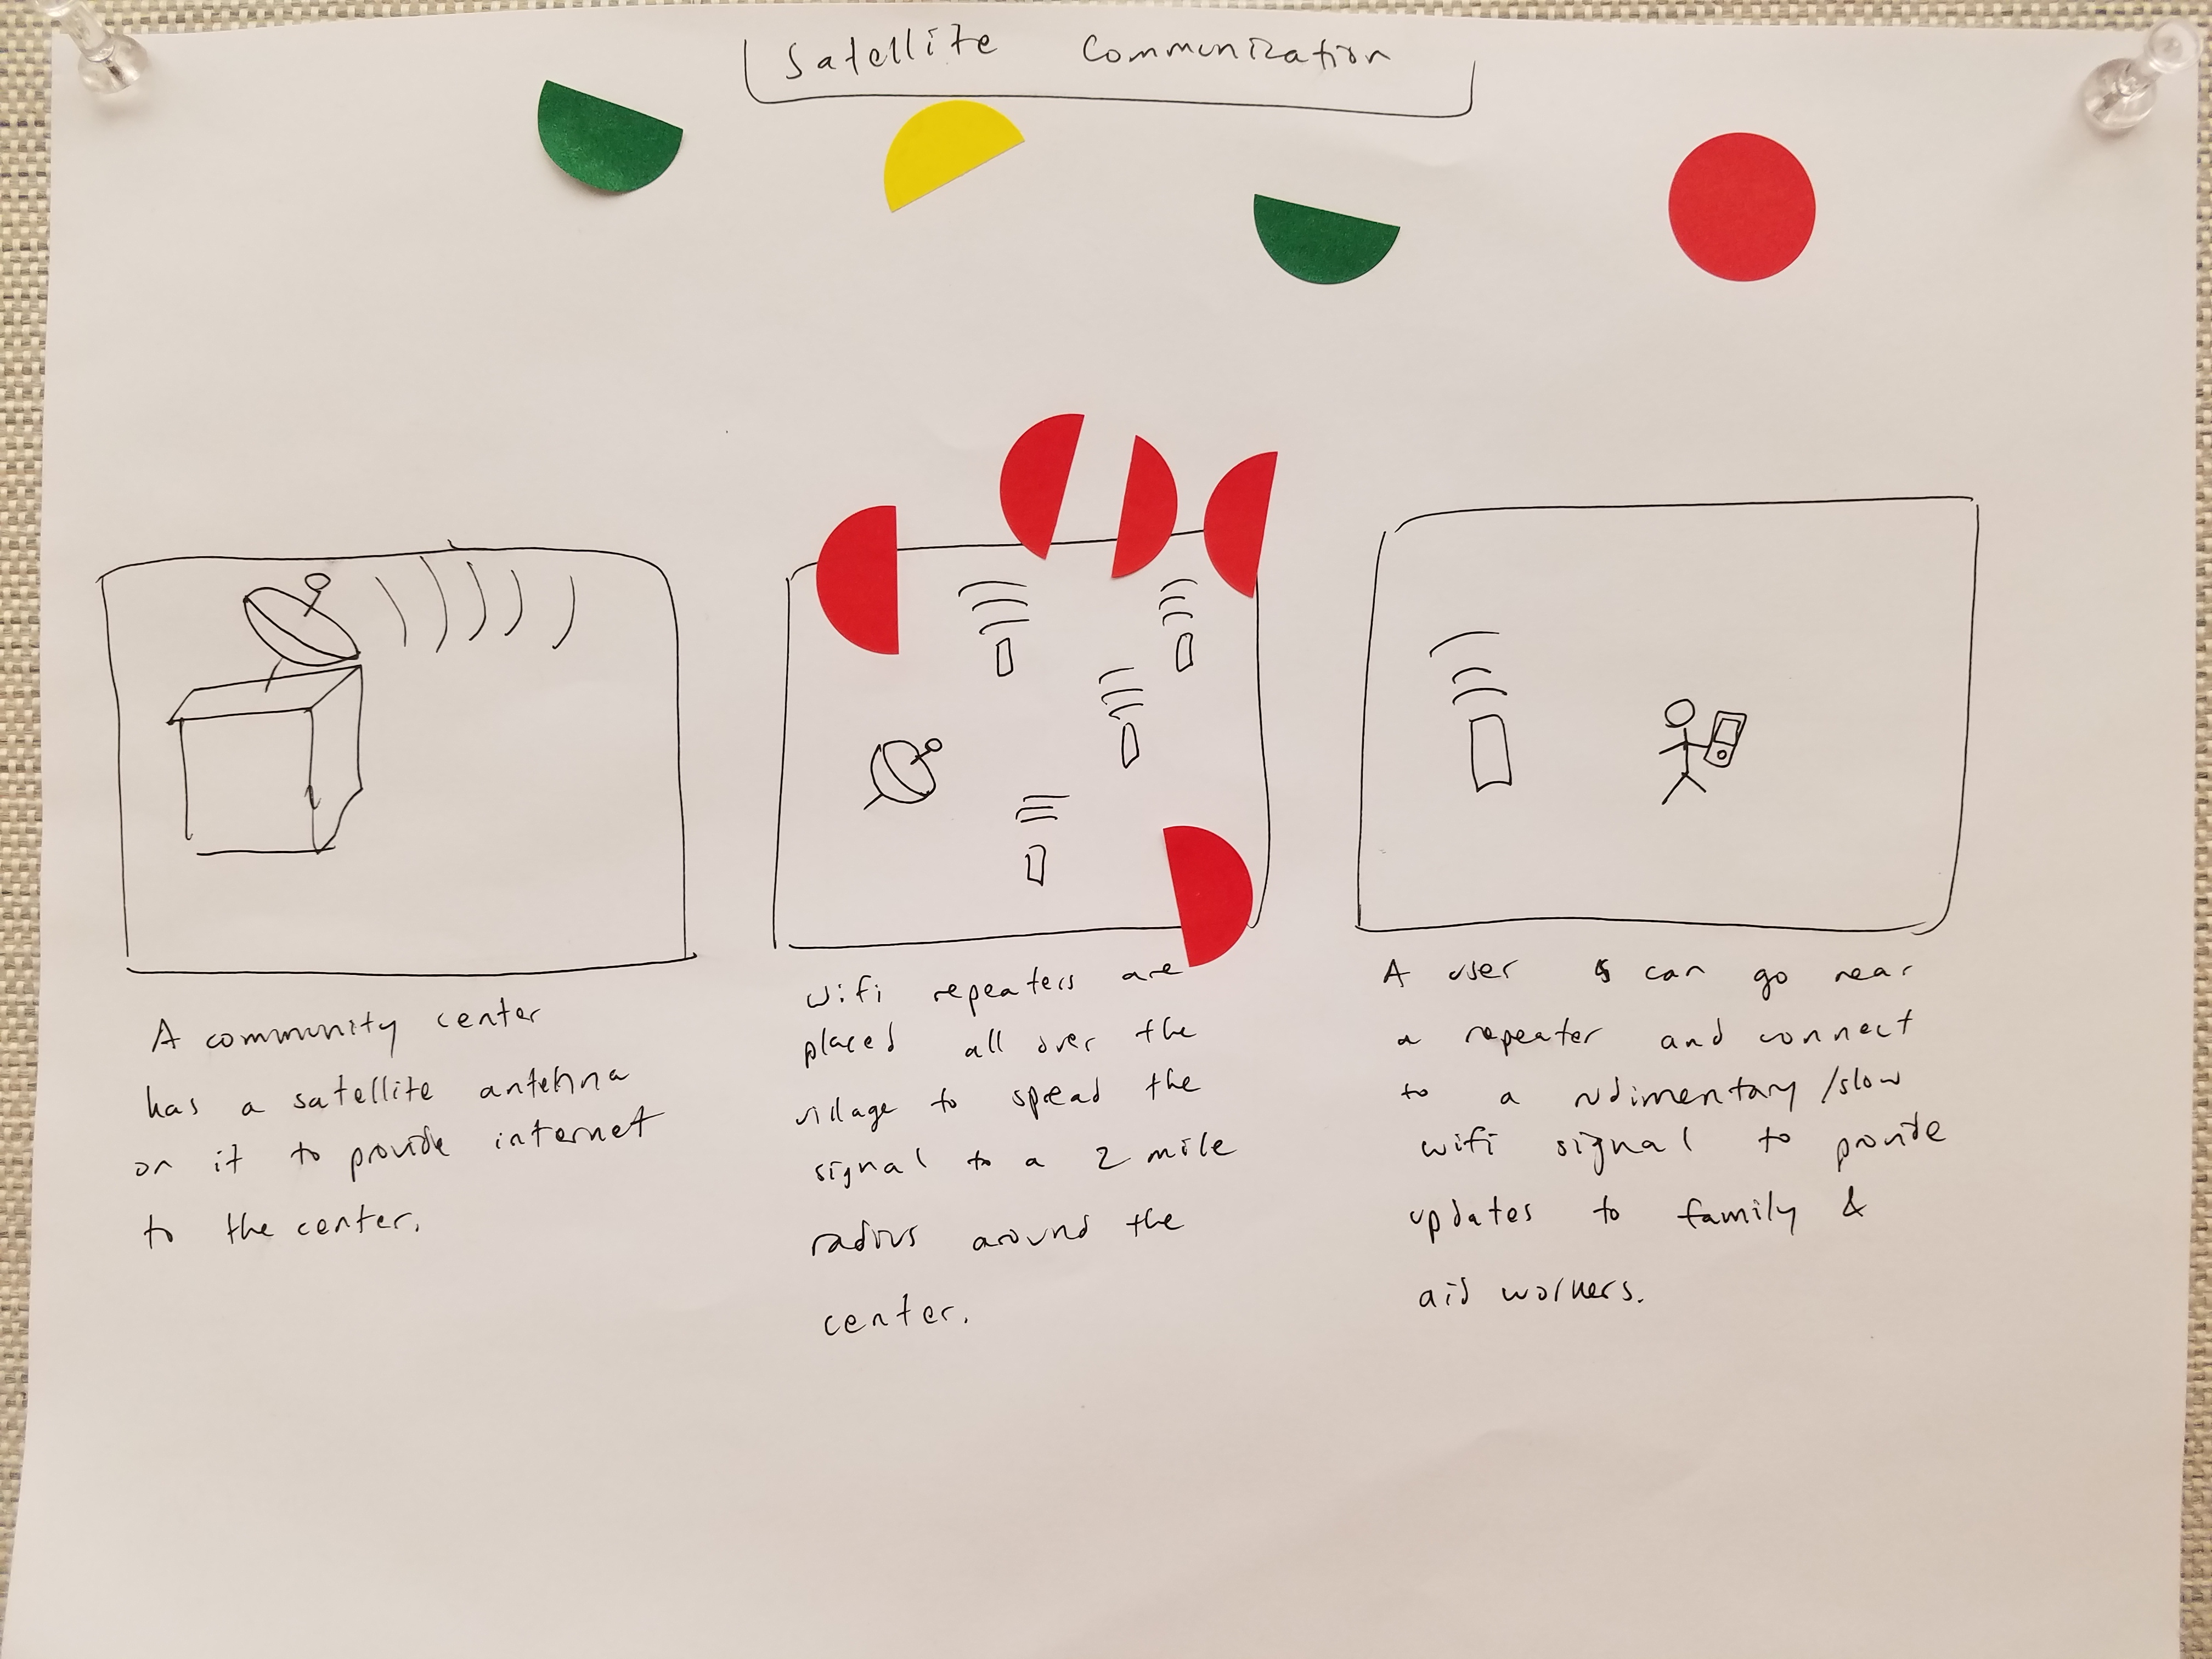 Satellite Communication
A community center
has a satellite antenna
on it to provide internet
to the center.
Wifi repeaters are
placed all over the
village to spread the
signal to a 2 mile
radius around the
center.
A user can go near
a repeater and connect
to a rudimentary/slow
wifi signal to provide
updates to family &
aid workers.